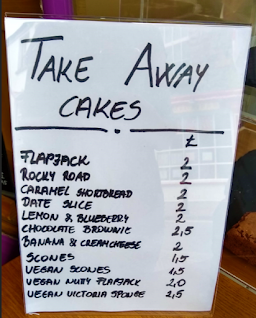 TAKE AWAY
CAKES
£
FLAPJACK 2
ROCKY ROAD 2
CARAMEL SHORTBREAD 2
DATE SLICE 2
LEMON & BLUEBERRY 2
CHOCOLATE BROWNIE 2,5
BANANA & CREAMCHEESE 2
SCONES 1,5
VEGAN SCONES 1,5
VEGAN NUTTY FLAPJACK 2,0
VEGAN VICTORIA SPONGE 2,5